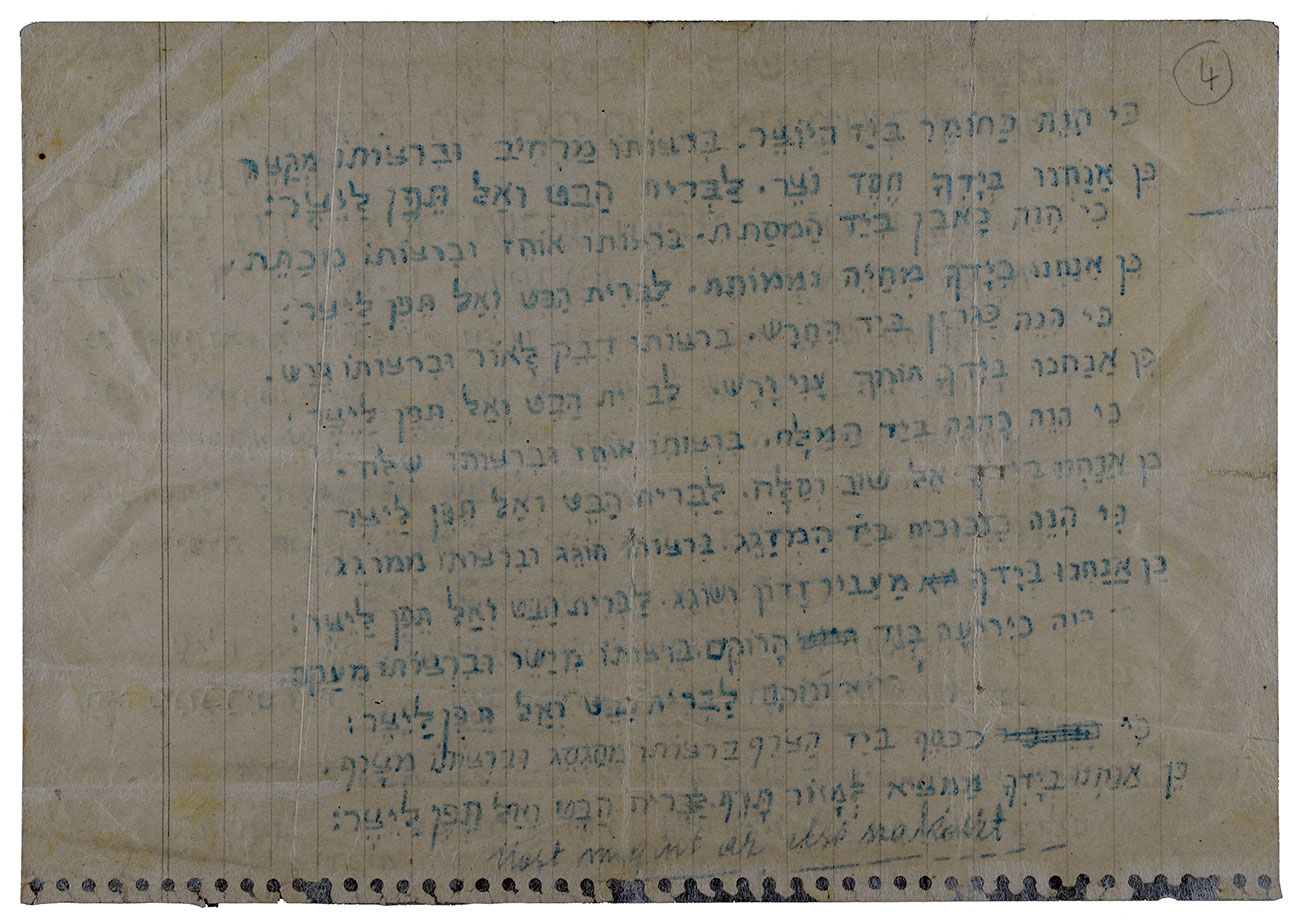 4
כִּי הִנֵּה כַּחוֹמֶר בְּיַד הַיּוֹצֵר. בִּרְצוֹתוֹ מַרְחִיב וּבִרְצוֹתוֹ מְקַצֵּר
כֵּן אֲנַחְנוּ בְּיָדְךָ חֶסֶד נֹצֵר. לַבְּרִית הַבֵּט וְאַל תֵּפֶן לַיֵּצֶר:
כִּי הִנֵּה כָּאֶבֶן בְּיַד הַמְסַתֵּת. בִּרְצוֹתוֹ אוֹחֵז וּבִרְצוֹתוֹ מְכַתֵּת.
כֵּן אֲנַחְנוּ בְּיָדְךָ מְחַיֶּה וּמְמוֹתֵת. לַבְּרִית הַבֵּט וְאַל תֵּפֶן לַיֵּצֶר:
כִּי הִנֵּה כַּגַּרְזֶן בְּיַד הֶחָרָשׁ. בִּרְצוֹתוֹ דִבֵּק לָאוֹר וּבִרְצוֹתוֹ פֵּרַשׁ.
כֵּן אֲנַחְנוּ בְּיָדְךָ תּוֹמֵךְ עָנִי וָרָשׁ. לַבְּרִית הַבֵּט וְאַל תֵּפֶן לַיֵּצֶר:
כִּי הִנֵּה כַּהֶגֶה בְּיַד הַמַּלָּח. בִּרְצוֹתוֹ אוֹחֵז וּבִרְצוֹתוֹ שִׁלַּח.
כֵּן אֲנַחְנוּ בְּיָדְךָ אֵל טוֹב וְסַלָּח. לַבְּרִית הַבֵּט וְאַל תֵּפֶן לַיֵּצֶר
כִּי הִנֵּה כַּזְּכוּכִית בְּיַד הַמְזַגֵּג. בִּרְצוֹתוֹ חוֹגֵג וּבִרְצוֹתוֹ מְמוֹגֵג.
כֵּן אֲנַחְנוּ בְּיָדְךָ מַעֲבִיר זָדוֹן וְשׁוֹגֵג. לַבְּרִית הַבֵּט וְאַל תֵּפֶן לַיֵּצֶר:
כַּיְרִיעָה בְּיַד הָרוֹקֵם בִּרְצוֹתוֹ מְיַשֵּׁר וּבִרְצוֹתוֹ מְעַקֵּם.
וְנוֹקֵם. לַבְּרִית הַבֵּט וְאַל תֵּפֶן לַיֵּצֶר:
כִּי כַּכֶּסֶף בְּיַד הַצּוֹרֵף בִּרְצוֹתוֹ מְסַגְסֵג וּבִרְצוֹתוֹ מְצָרֵף.
כֵּן אֲנַחְנוּ בְּיָדְךָ מַמְצִיא לְמָזוֹר תֶּרֶף. לַבְּרִית הַבֵּט וְאַל תֵּפֶן לַיֵּצֶר:
Most megint az első szakaszt